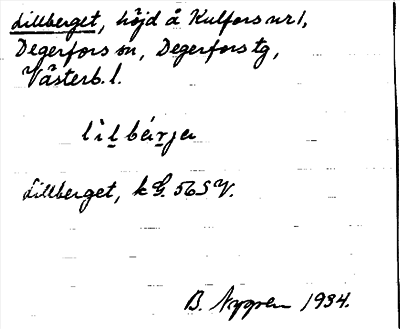 Lillberget, höjd å Kulfors nr 1,
Degerfors sn, Degerfors tg,
Västerb. l.
lìlbárja
Lillberget, k G. 56 S V.
B. Nygren 1934.